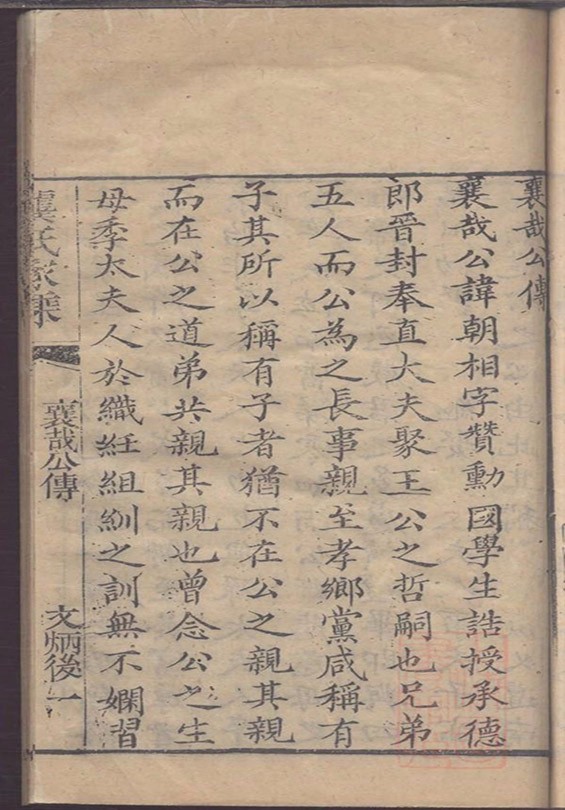 襄哉公傳
襄哉公諱朝相字贊勳國學生誥授承德
郎晉封奉直大夫聚王公之哲嗣也兄弟
五人而公為之長事親至孝鄉黨咸稱有
子其所以稱有子者猶不在公之親其親
而在公之道弟共親其親也曾念公之生
母季太夫人於織紝組紃之訓無不嫻習
龔氏家集
襄哉公傳
文炳後一